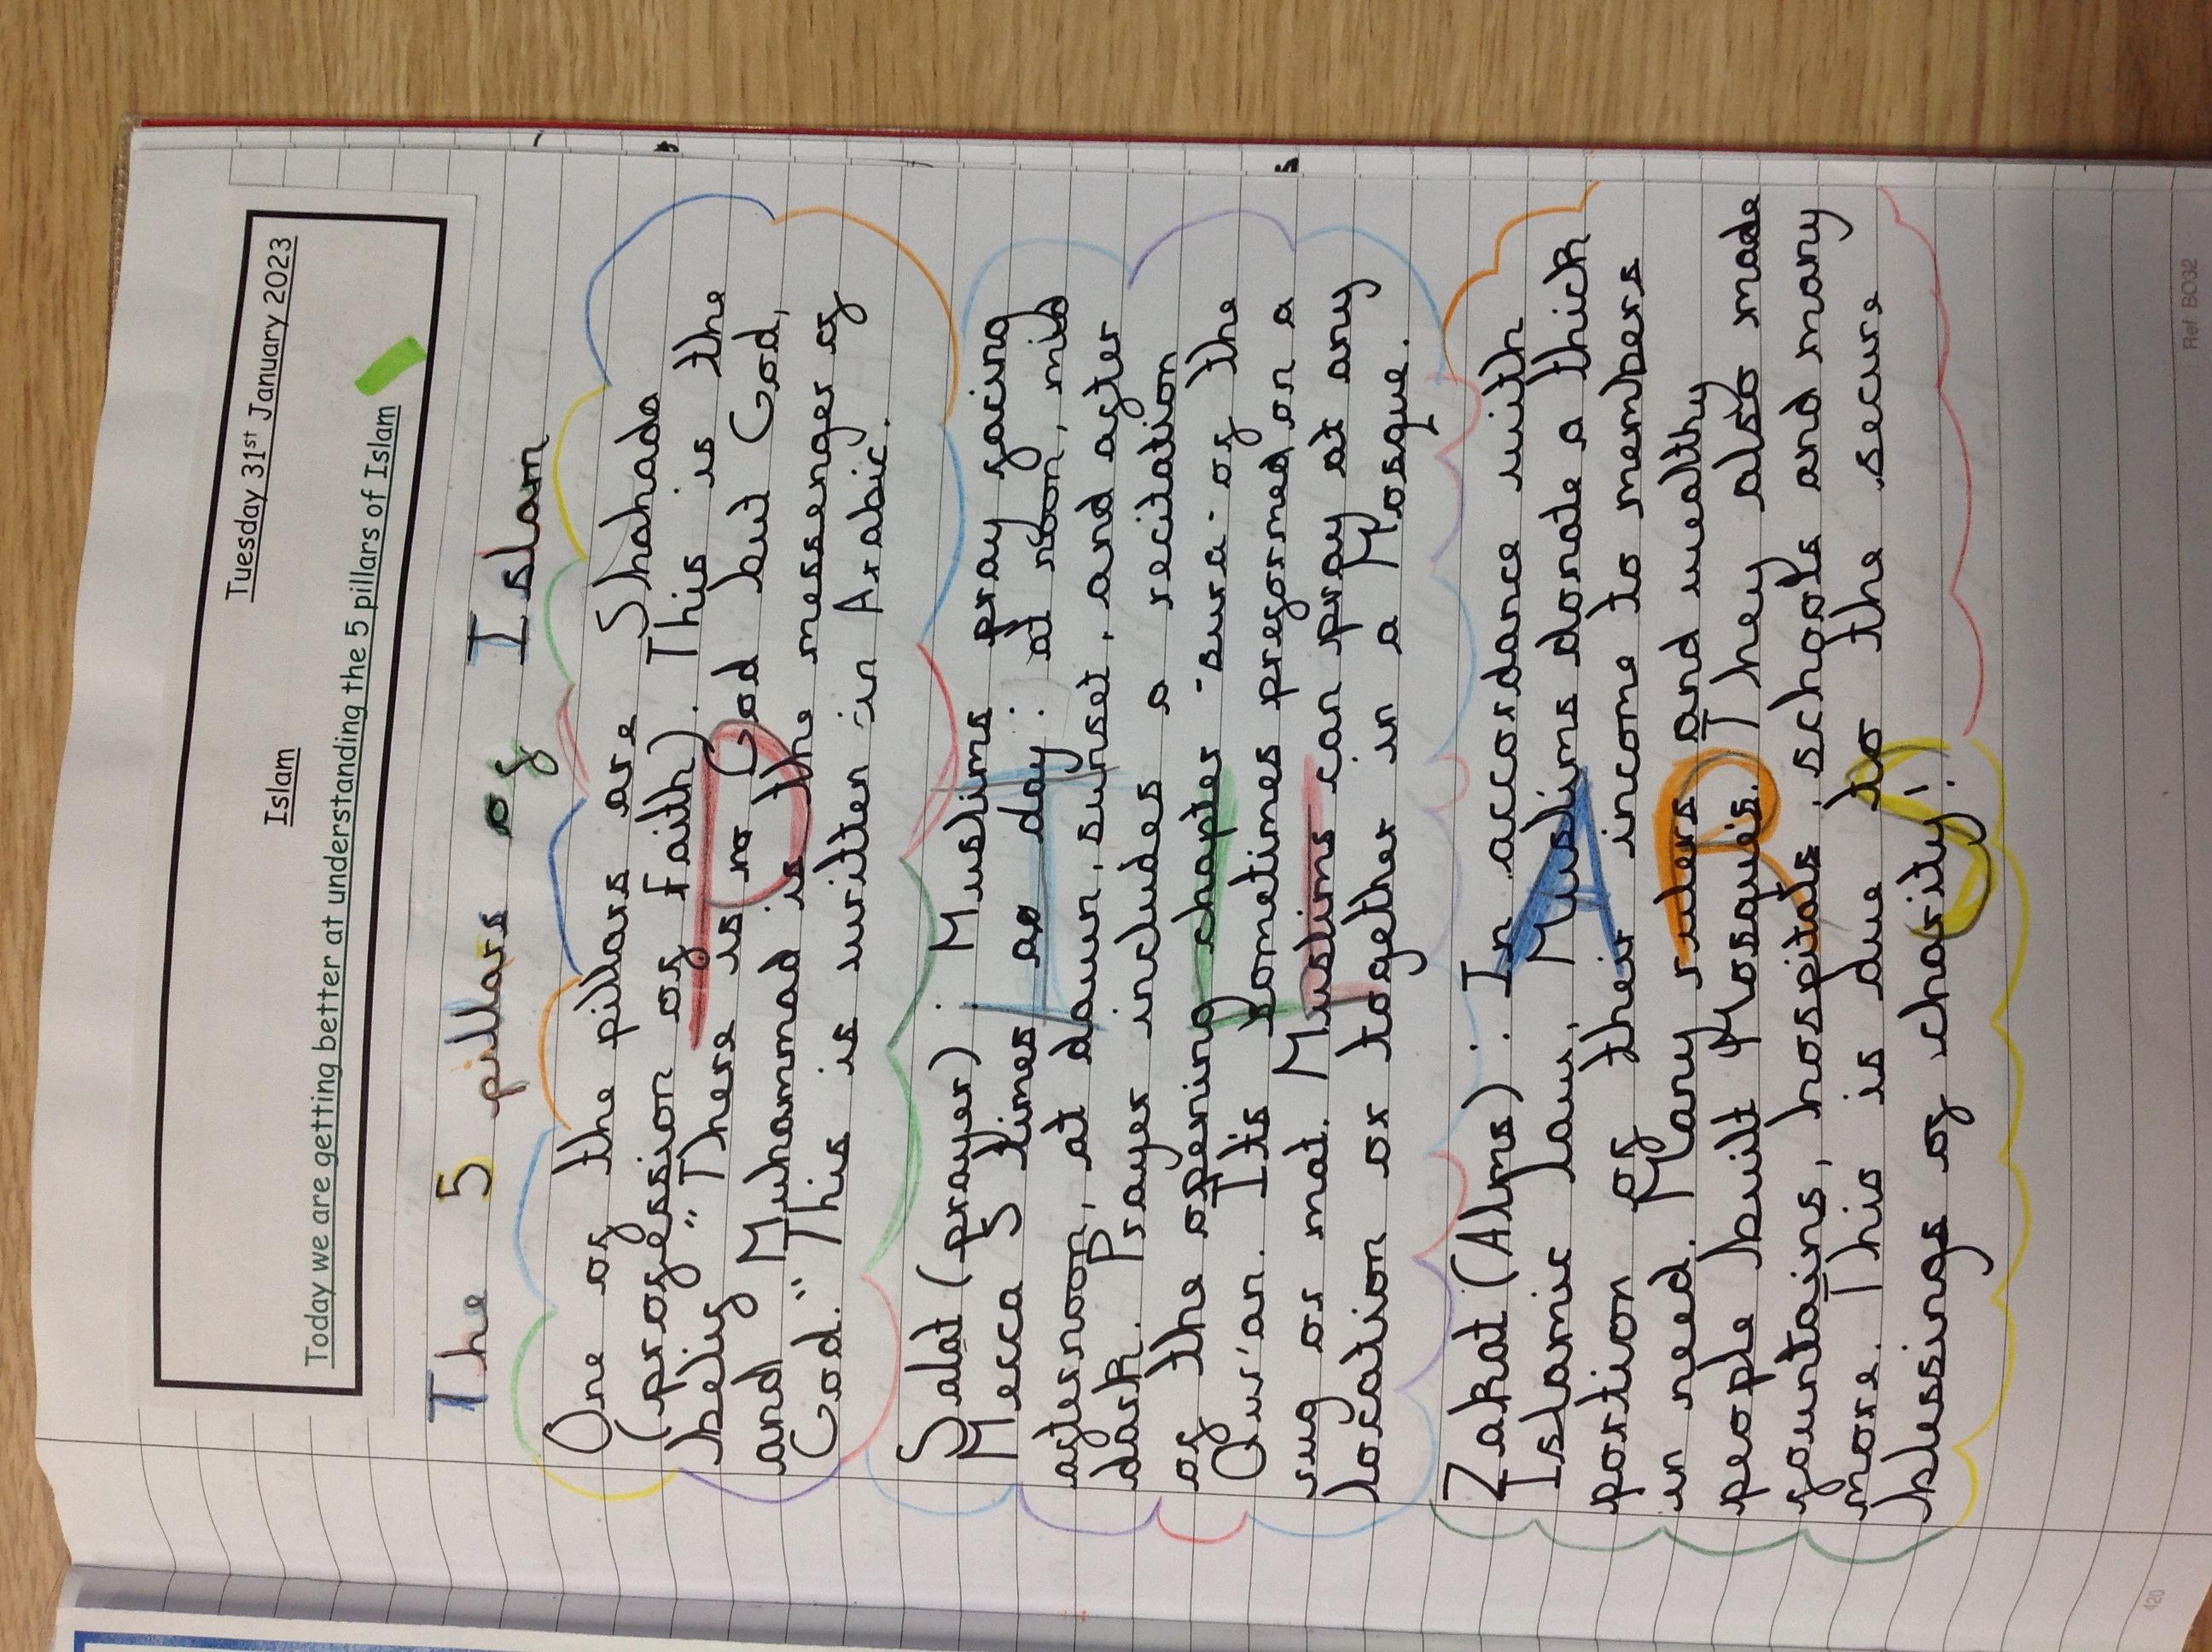 Tuesday 31st January 2023
Islam
Today we are getting better at understanding the 5 pillars of Islam
The 5 pillars of Islam
One of the pillars are Shahada
(profession of Faith). This is the
belief "There is no God but God,
and Muhammad is the messenger of
God." This is written in Arabic.
Salat (prayer): Muslims pray facing
Mecca 5 times a day: at noon, mid
afternoon, at dawn, sunset, and after
dark. Prayer includes a recitation
of the opening chapter -sura- of the
Qur'an. Its sometimes preformed on a
rug or mat. Muslims can pray at any
location or together in a Mosque.
Zakat (Alms): In accordance with
Islamic law, Muslims donate a thick
portion of their income to members
in need. Many rulers and wealthy
people built Mosques. They also made
fountains, hospitals, schools and many
more. This is due to the secure
blessings of charity!
PILLARS
Ref: BO32
420